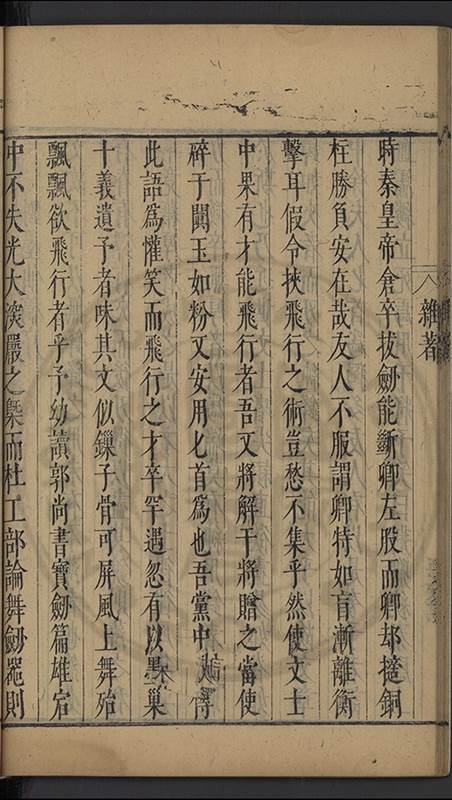 雜著
時秦皇帝倉卒拔劒能斷卿左股而卿却擿銅
柱勝負安在哉友人不服謂卿特如盲漸離衡
擊耳假令挾飛行之術豈愁不集乎然使文士
中果有才能飛行者吾又將解干將贈之當使
碎于闐玉如粉又安用匕首爲也吾黨中傳
此語爲懽笑而飛行之才卒罕遇忽有以墨巢
十義遺予者味其文似鏁子骨可屏風上舞殆
飄飄欲飛行者乎予幼讀郭尚書寶劒篇雄宕
中不失光大淡嚴之槩而杜工部論舞劒噐則